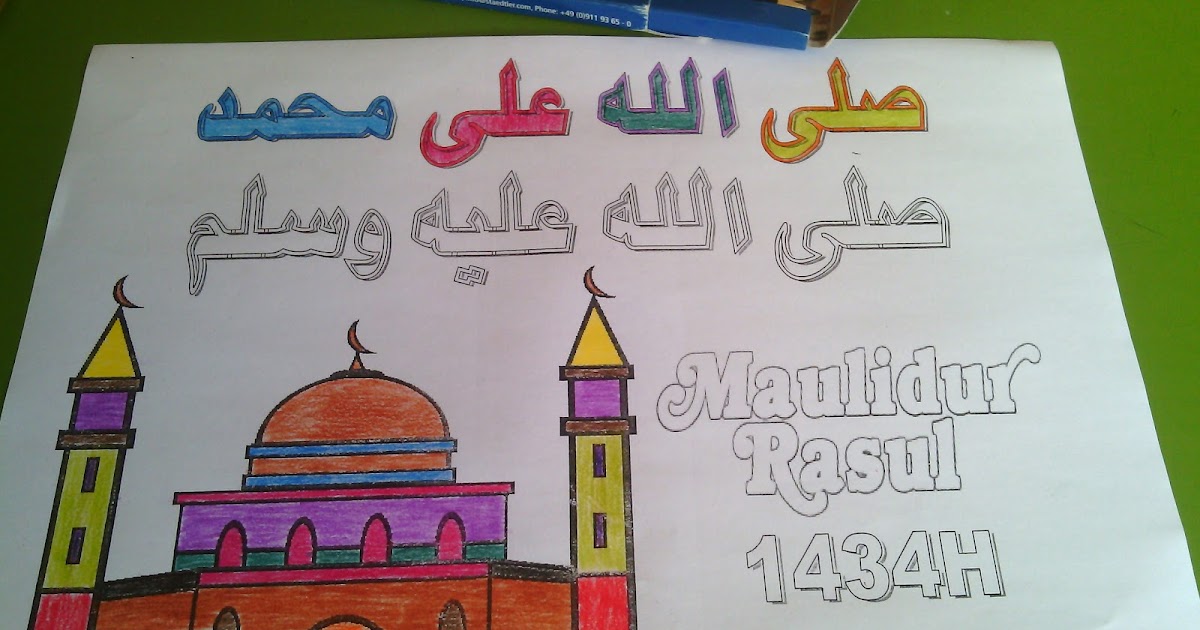 staedtler.com, Phone: +49 (0)911 93 65 - 0
صلى الله على محمد
صلى الله عليه وسلم
Maulidur
Rasul
1434H